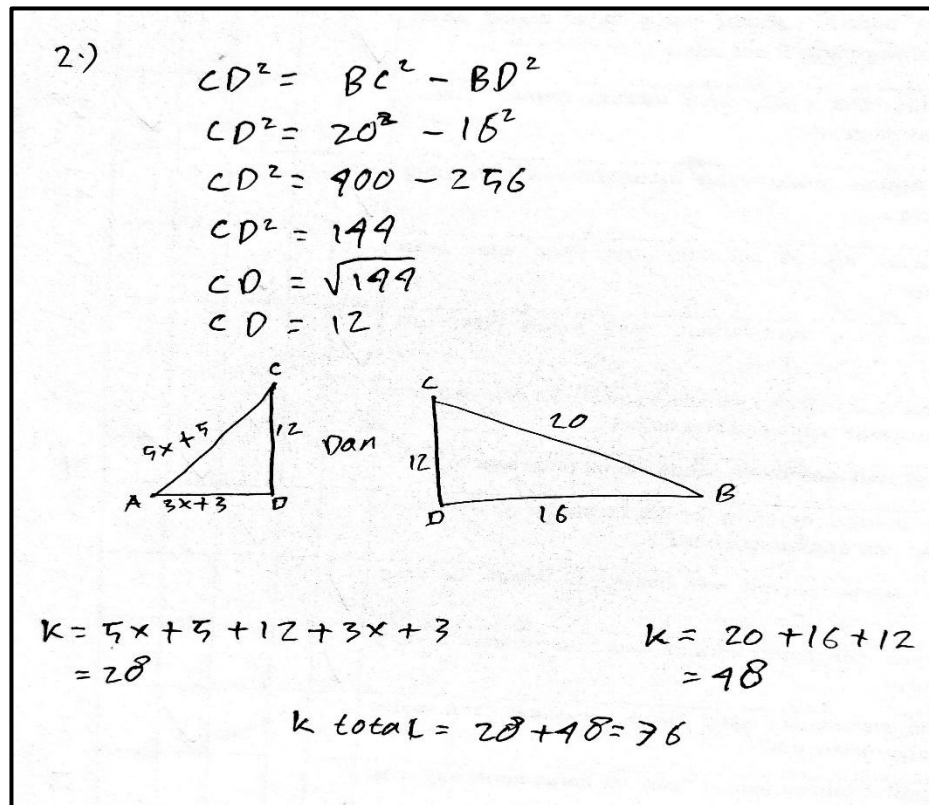 2.)
CD² = BC² - BD²
CD² = 20² - 16²
CD² = 400 - 256
CD² = 144
CD = √144
CD = 12
C
5x+5
12
A
3x+3
D
Dan
C
20
12
D
16
B
K = 5x + 5 + 12 + 3x + 3
= 28
K = 20 + 16 + 12
= 48
K total = 28 + 48 = 76